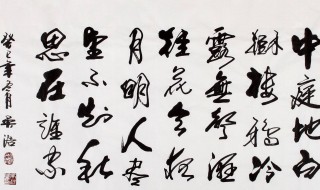 中庭地白
樹棲鴉冷
露無聲濕
桂花今夜
月明人盡
望不知秋
思在誰家
癸巳年